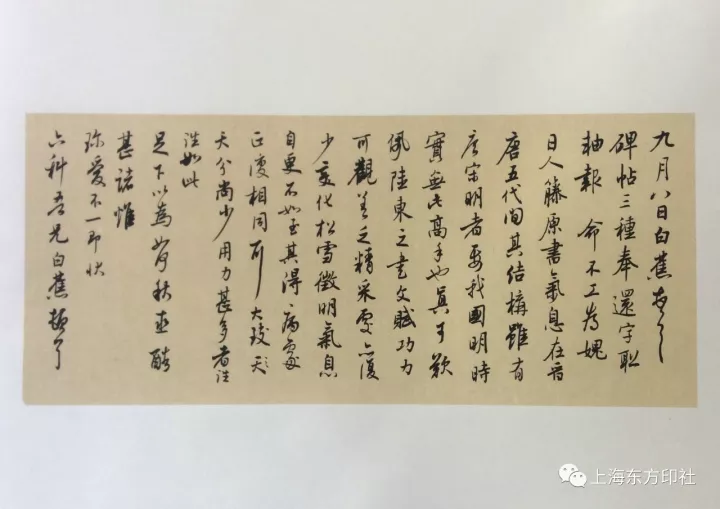 九月八日白蕉頓首
碑帖三種奉還字聊
軸報 命不工為媿
日人籐原書氣息在晋
唐五代间其结構雖有
唐宋明者要我國明時
實無此高手也真可歎
佩陸東之書文賦功力
可觀 精采處亦復
少变化松雪徵明氣息
自更不如至其得病處
正復相同 大致形
天分尚少用力甚多者往
往如此
足下以為
甚諸惟
珍爱不一即状
六科吾兄白蕉頓首
上海东方印社